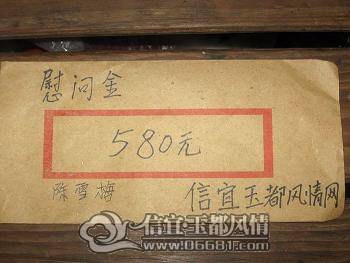 慰问金
580元
陈雪梅
信宜玉都风情网
信宜玉都风情
www.06681.com